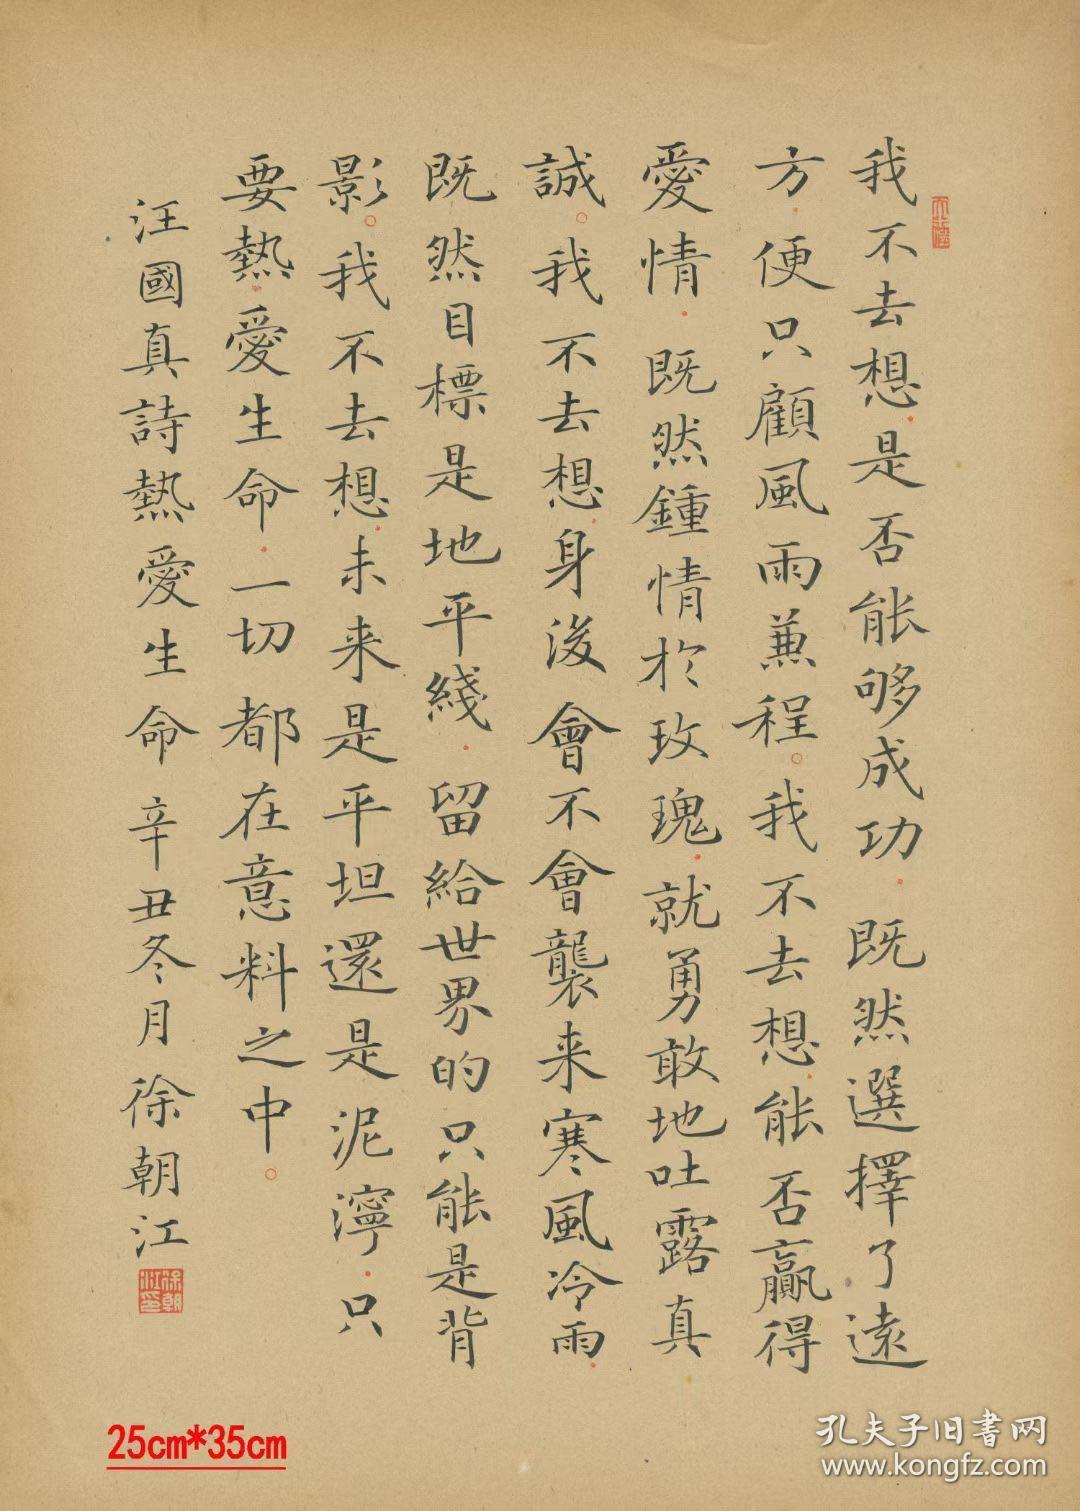 我不去想.是否能够成功.既然選擇了遠
方.便只顧風雨兼程。我不去想.能否贏得
愛情.既然鍾情於玫瑰.就勇敢地吐露真
誠。我不去想.身後會不會襲来寒風冷雨.
既然目標是地平綫.留給世界的只能是背
影。我不去想.未来是平坦還是泥濘.只
要熱愛生命.一切都在意料之中。
汪國真詩熱愛生命辛丑冬月徐朝江
徐朝江印
25cm*35cm
孔夫子旧書网
www.kongfz.com